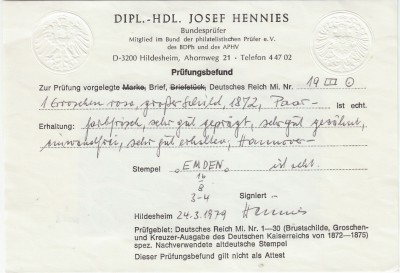 DIPL.-HDL. JOSEF HENNIES
Bundesprüfer
Mitglied im Bund der philatelistischen Prüfer e.V.
des BDPh und des APHV
D-3200 Hildesheim, Ahornweg 21 · Telefon 4 47 02
Prüfungsbefund
Zur Prüfung vorgelegte Marke, Brief, Briefstück, Deutsches Reich Mi. Nr. 19
1 Groschen rosa, großer Schild, 1872, Paar - ist echt.
Erhaltung: farbfrisch, sehr gut geprägt, sehr gut gezähnt,
einwandfrei, sehr gut erhalten, Hannover-
Stempel „EMDEN" ist echt.
16
8
3-4
Signiert -
Hildesheim 24.3.1979 Hennies
Prüfgebiet: Deutsches Reich Mi. Nr. 1—30 (Brustschilde, Groschen-
und Kreuzer-Ausgabe des Deutschen Kaiserreichs von 1872—1875)
spez. Nachverwendete altdeutsche Stempel
Dieser Prüfungsbefund gilt nicht als Attest